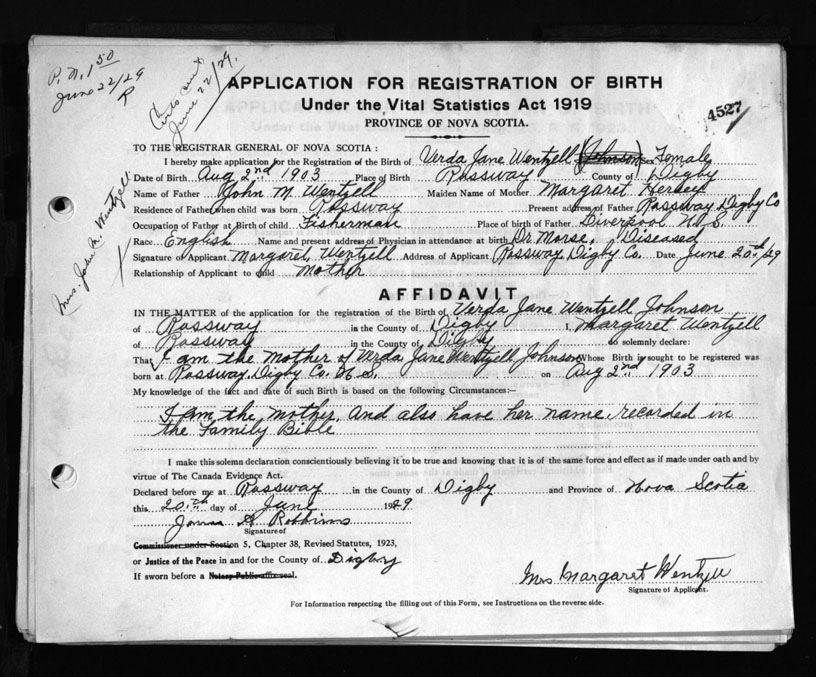 P. N. 1 50
June 22/29
R
June 22/29.
APPLICATION FOR REGISTRATION OF BIRTH
Under the Vital Statistics Act 1919
PROVINCE OF NOVA SCOTIA.
4527
TO THE REGISTRAR GENERAL OF NOVA SCOTIA :
I hereby make application for the Registration of the Birth of Verda Jane Wentzell (Johnson) Sex Female
Date of Birth Aug 2nd 1903 Place of Birth Rossway County of Digby
Name of Father John M. Wentzell Maiden Name of Mother Margaret Hersey
Residence of Father when child was born Rossway Present address of Father Rossway Digby Co
Occupation of Father at Birth of child Fisherman Place of birth of Father Liverpool N.S.
Race English Name and present address of Physician in attendance at birth Dr Morse. Diseased
Signature of Applicant Margaret Wentzell Address of Applicant Rossway Digby Co. Date June 20th/29
Relationship of Applicant to child Mother
Mrs. John M. Wentzell
AFFIDAVIT
IN THE MATTER of the application for the registration of the Birth of Verda Jane Wentzell Johnson
of Rossway in the County of Digby I, Margaret Wentzell
of Rossway in the County of Digby do solemnly declare:
That I am the mother of Verda Jane Wentzell Johnson Whose Birth is sought to be registered was
born at Rossway Digby Co. N.S. on Aug 2nd 1903
My knowledge of the fact and date of such Birth is based on the following Circumstances:—
I am the mother, and also have her name recorded in
the Family Bible
I make this solemn declaration conscientiously believing it to be true and knowing that it is of the same force and effect as if made under oath and by
virtue of The Canada Evidence Act.
Declared before me at Rossway in the County of Digby and Province of Nova Scotia
this 20th day of June 1929
Robbins
Signature of
Commissioner under Section 5, Chapter 38, Revised Statutes, 1923,
or Justice of the Peace in and for the County of Digby
If sworn before a Notary Public affix seal.
Mrs Margaret Wentzell
Signature of Applicant.
For Information respecting the filling out of this Form, see Instructions on the reverse side.